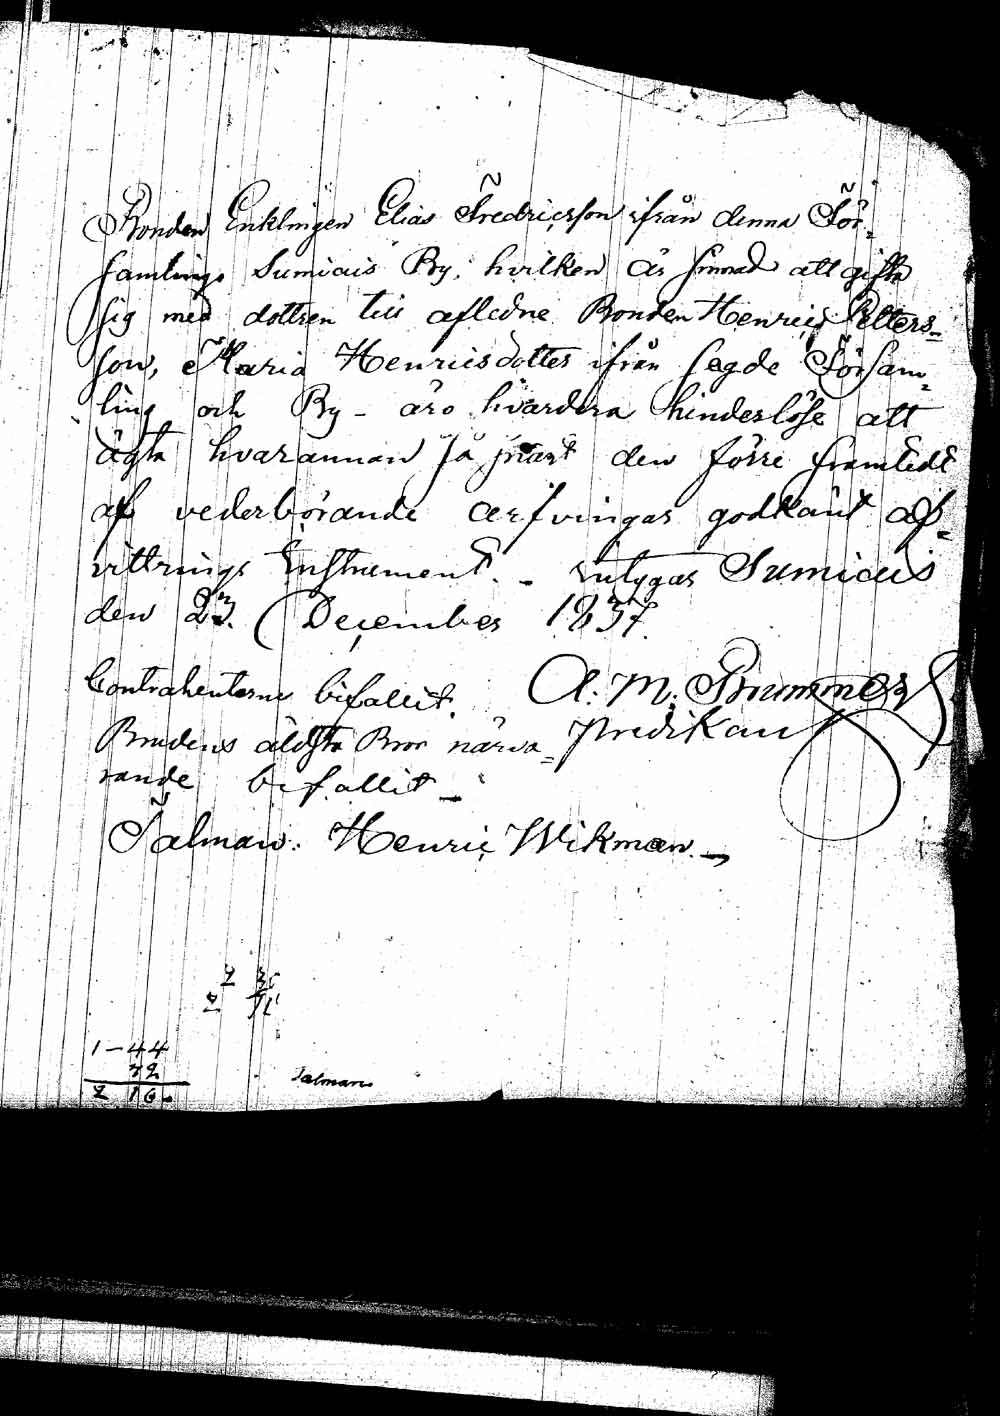 Bonden Enklingen Elias Fredricsson ifrån denna För=
samlings Sumiais By, hvilken är sinnad att gifta
sig med dottren till aflidne Bonden Henric Petters=
son, Maria Henricsdotter ifrån sagde Försam=
ling och By - äro hvardera hinderlöse att
ägta hvarannan så snart den förre framtedt
af vederbörande arfvingar godkänt af=
vittrings Instrument. - intygar Sumiais
den 23. December 1837.
Contrahenterne bifallit. A. M. Brummer
Brudens äldsta Bror närva= Predikant
rande bifallit -
Talman. Henric Wikman. -
1-44
72
2 16.
Talman